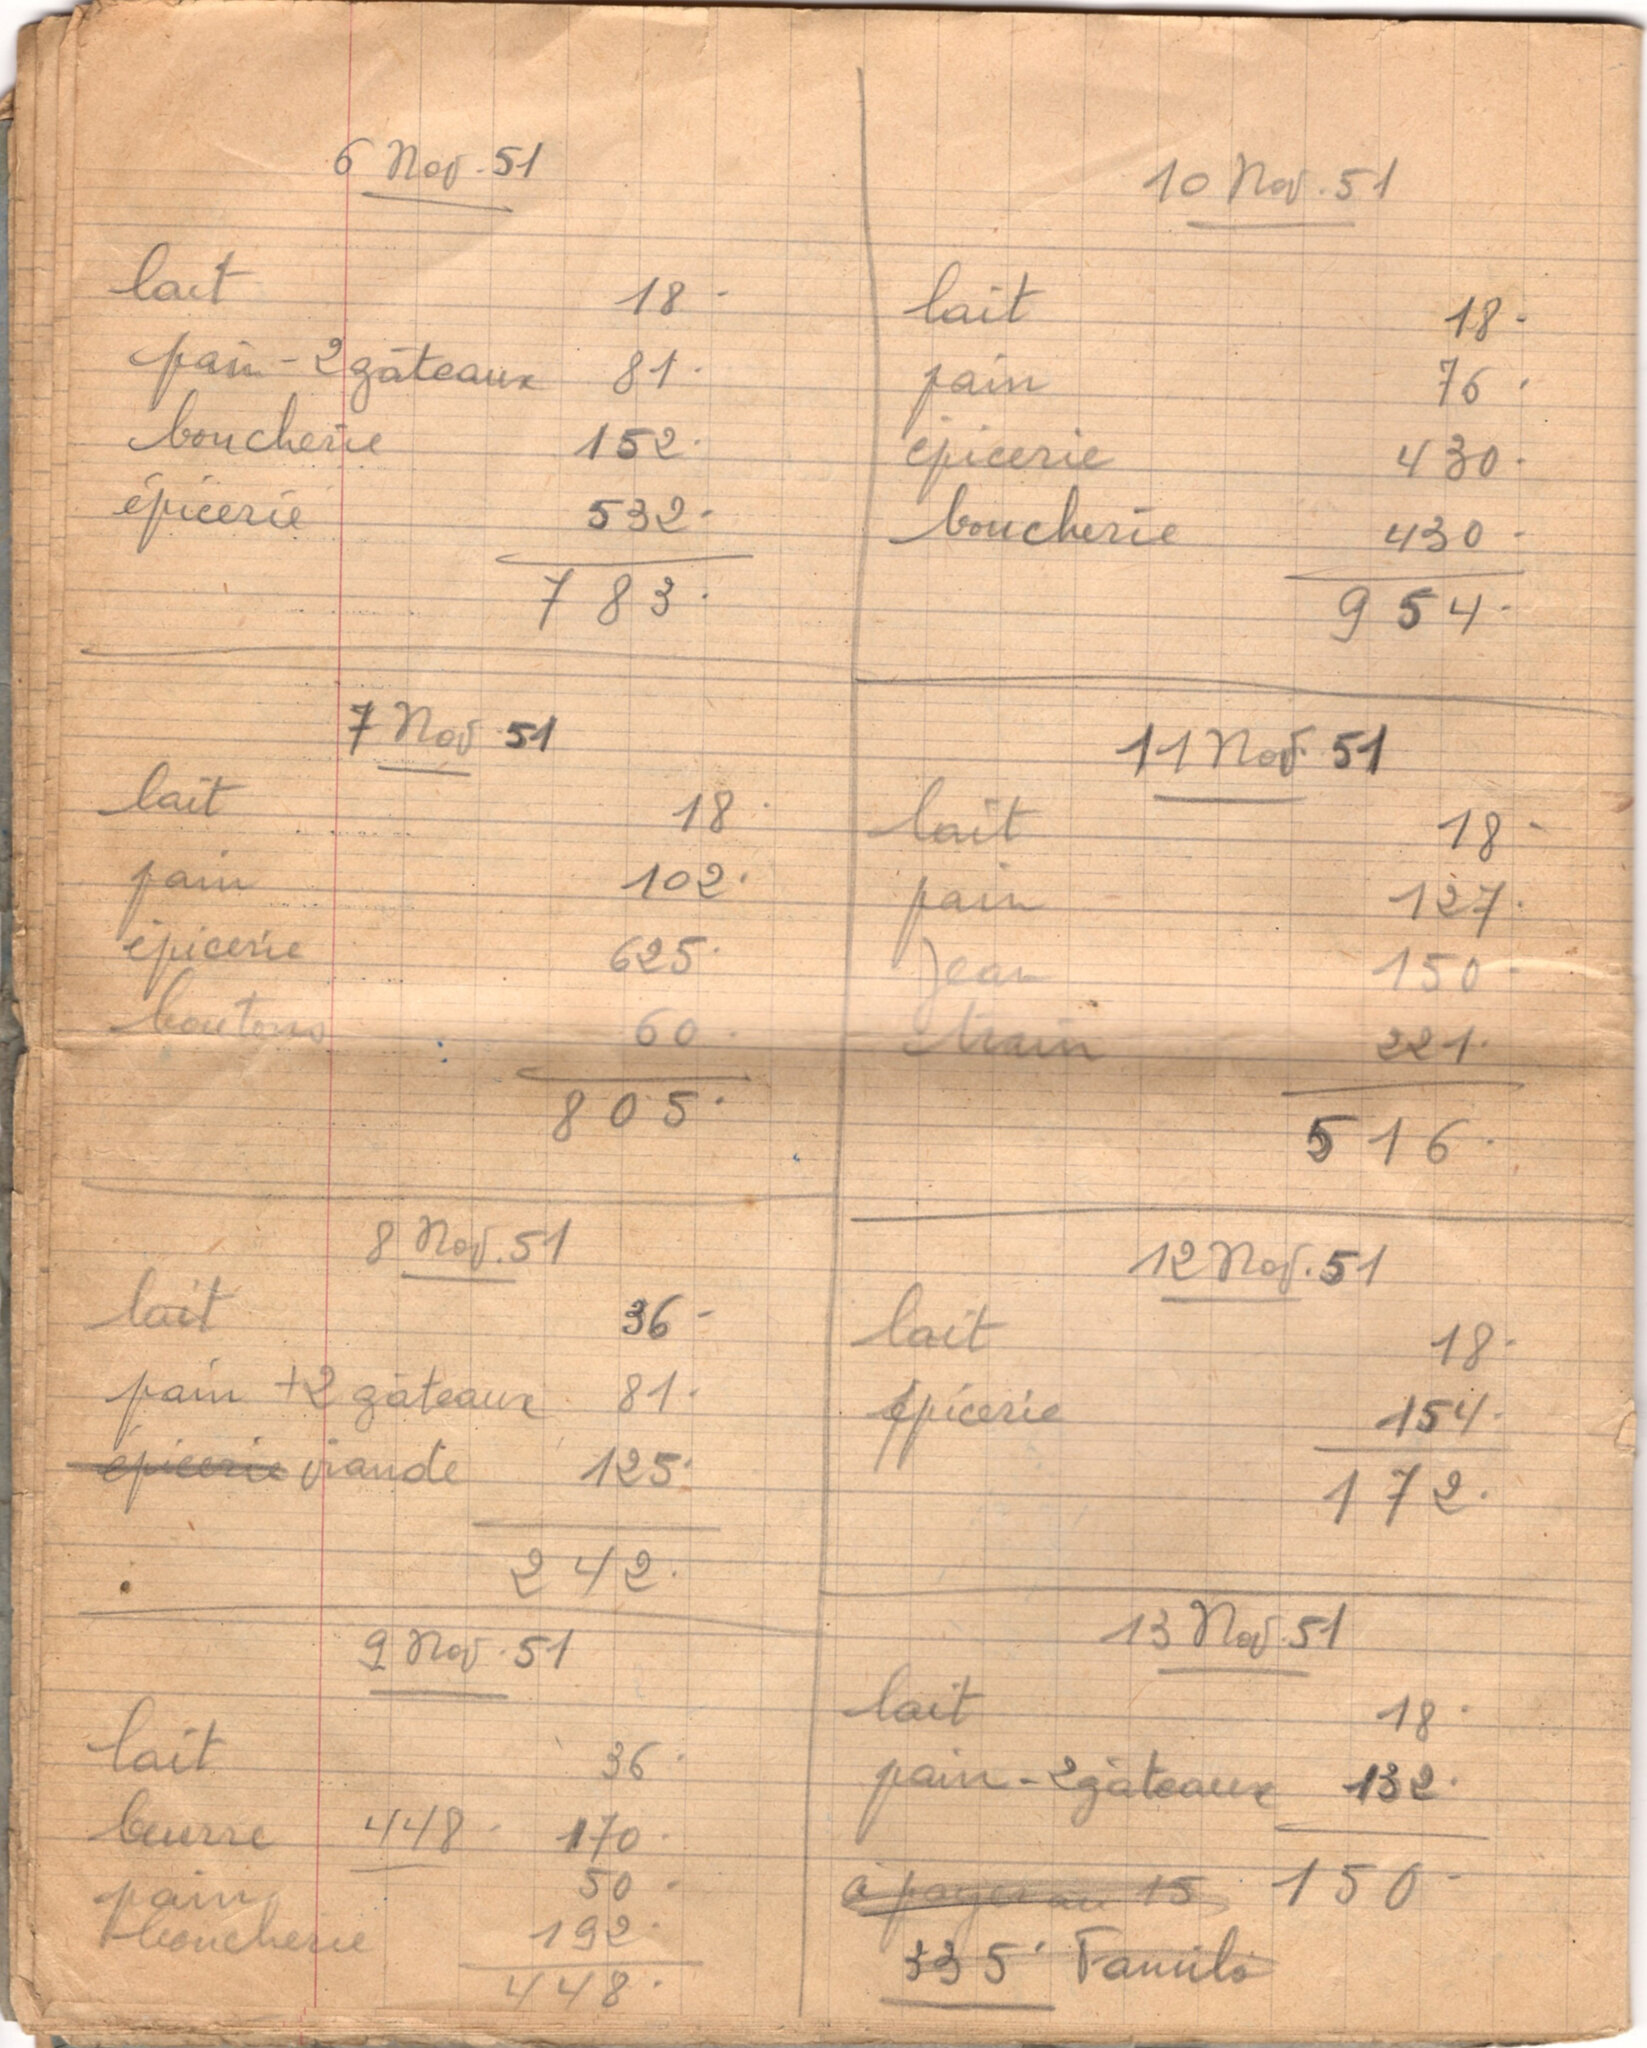 6 Nov. 51
lait 18.
pain - 2 gâteaux 81.
boucherie 152.
épicerie 532.
783.
7 Nov 51
lait 18.
pain 102.
épicerie 625.
boutons 60.
805.
8 Nov. 51
lait 36-
pain + 2 gâteaux 81.
épicerie viande 125.
242.
9 Nov. 51
lait 36.
beurre 448. 170.
pain 50.
boucherie 192.
448.
10 Nov. 51
lait 18.
pain 76.
épicerie 430.
boucherie 430.
954.
11 Nov. 51
lait 18-
pain 127.
Jean 150-
train 221.
516.
12 Nov. 51
lait 18.
épicerie 154.
172.
13 Nov. 51
lait 18.
pain - 2 gâteaux 132.
à payer au 15 150-
335.